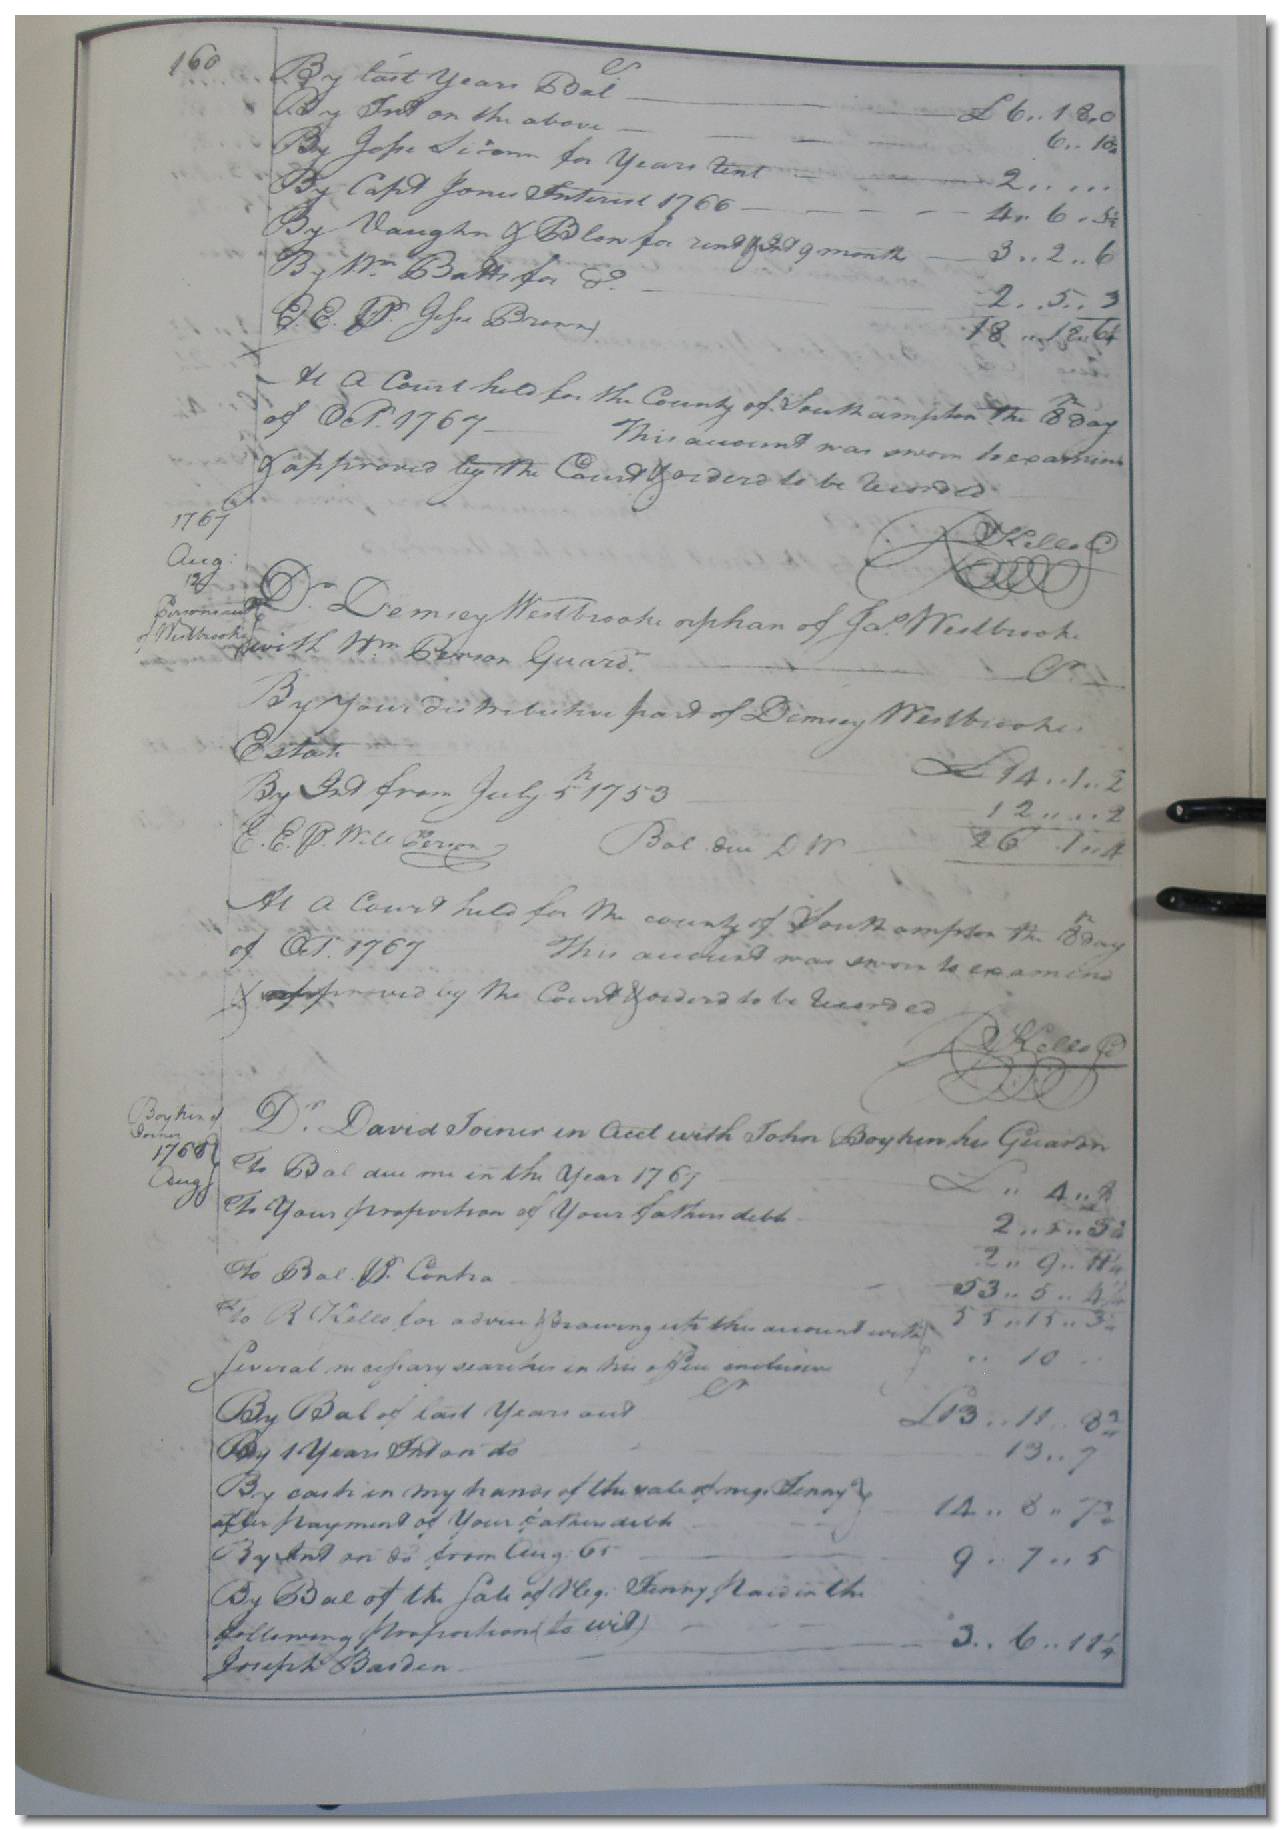 160
Cr
By last Years Bal £6..18.0
By Int on the above 6..10¾
By Jesse for Years rent 2.. ...
By Capt Jones Interest 1766 4.. 6..
By Vaughn & for rent & Int 9 month 3..2..6
By Wm Batts for Do. 2..5..3
E. E. P. Jesse Brown 18..
At a Court held for the County of Southampton the 8th day
of Oct. 1767 This account was sworn to examind
& approved by the Court & orderd to be Recorded
R Kello C
1767
Aug:
12
Persons acct
of Westbrooke
Dr. Demsey Westbrooke orphan of Jas. Westbrooke
with Wm Person Guard. Cr
By Your distributive part of Demsey Westbrookes
Estate £14..1..2
By Int from July 5th 1753 12.. ..2
E. E. P. Will Person Bal. due D W 26 1..4
At a Court held for the county of Southampton the 8th day
of Oct. 1767 This account was sworn to examind
& approved by the Court & orderd to be Recorded
R Kello C
Boykin of
Joiner
1768
Aug
Dr. David Joiner in Acct with John Boykin his Guardn
To Bal due me in the Year 1767 £ .. 4..
To Your proportion of Your fathers debts 2..5..
2.. 9.. 11¼
To Bal. P. Contra 53..5..4¼
To R Kello for advice & drawing up this account with 55..15..
several necessary searches in his office inclusive .. 10 ..
Cr
By Bal of last Years acct £13..11..
By 1 Years Int on do 13..7
By cash in my hands of the sale of neg. Jenny
after payment of Your fathers debts 14..8..7¾
By Int on do from Aug. 65 9..7..5
By Bal of the Sale of Neg. Jenny paid in the
following proportion (to wit)
Joseph Barden 3..6..11¼